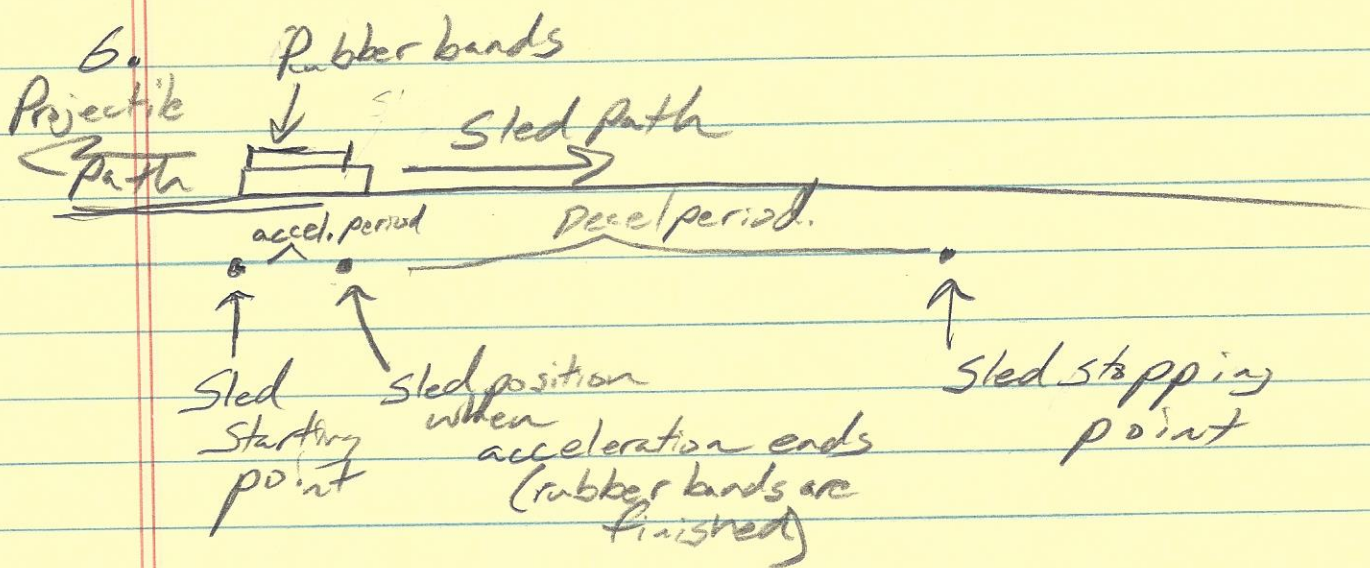 6.
Rubber bands
Projectile
Path
Sled Path
accel. period
Decel period.
Sled
Starting
point
Sled position
when
acceleration ends
(rubber bands are
finished)
Sled stopping
point